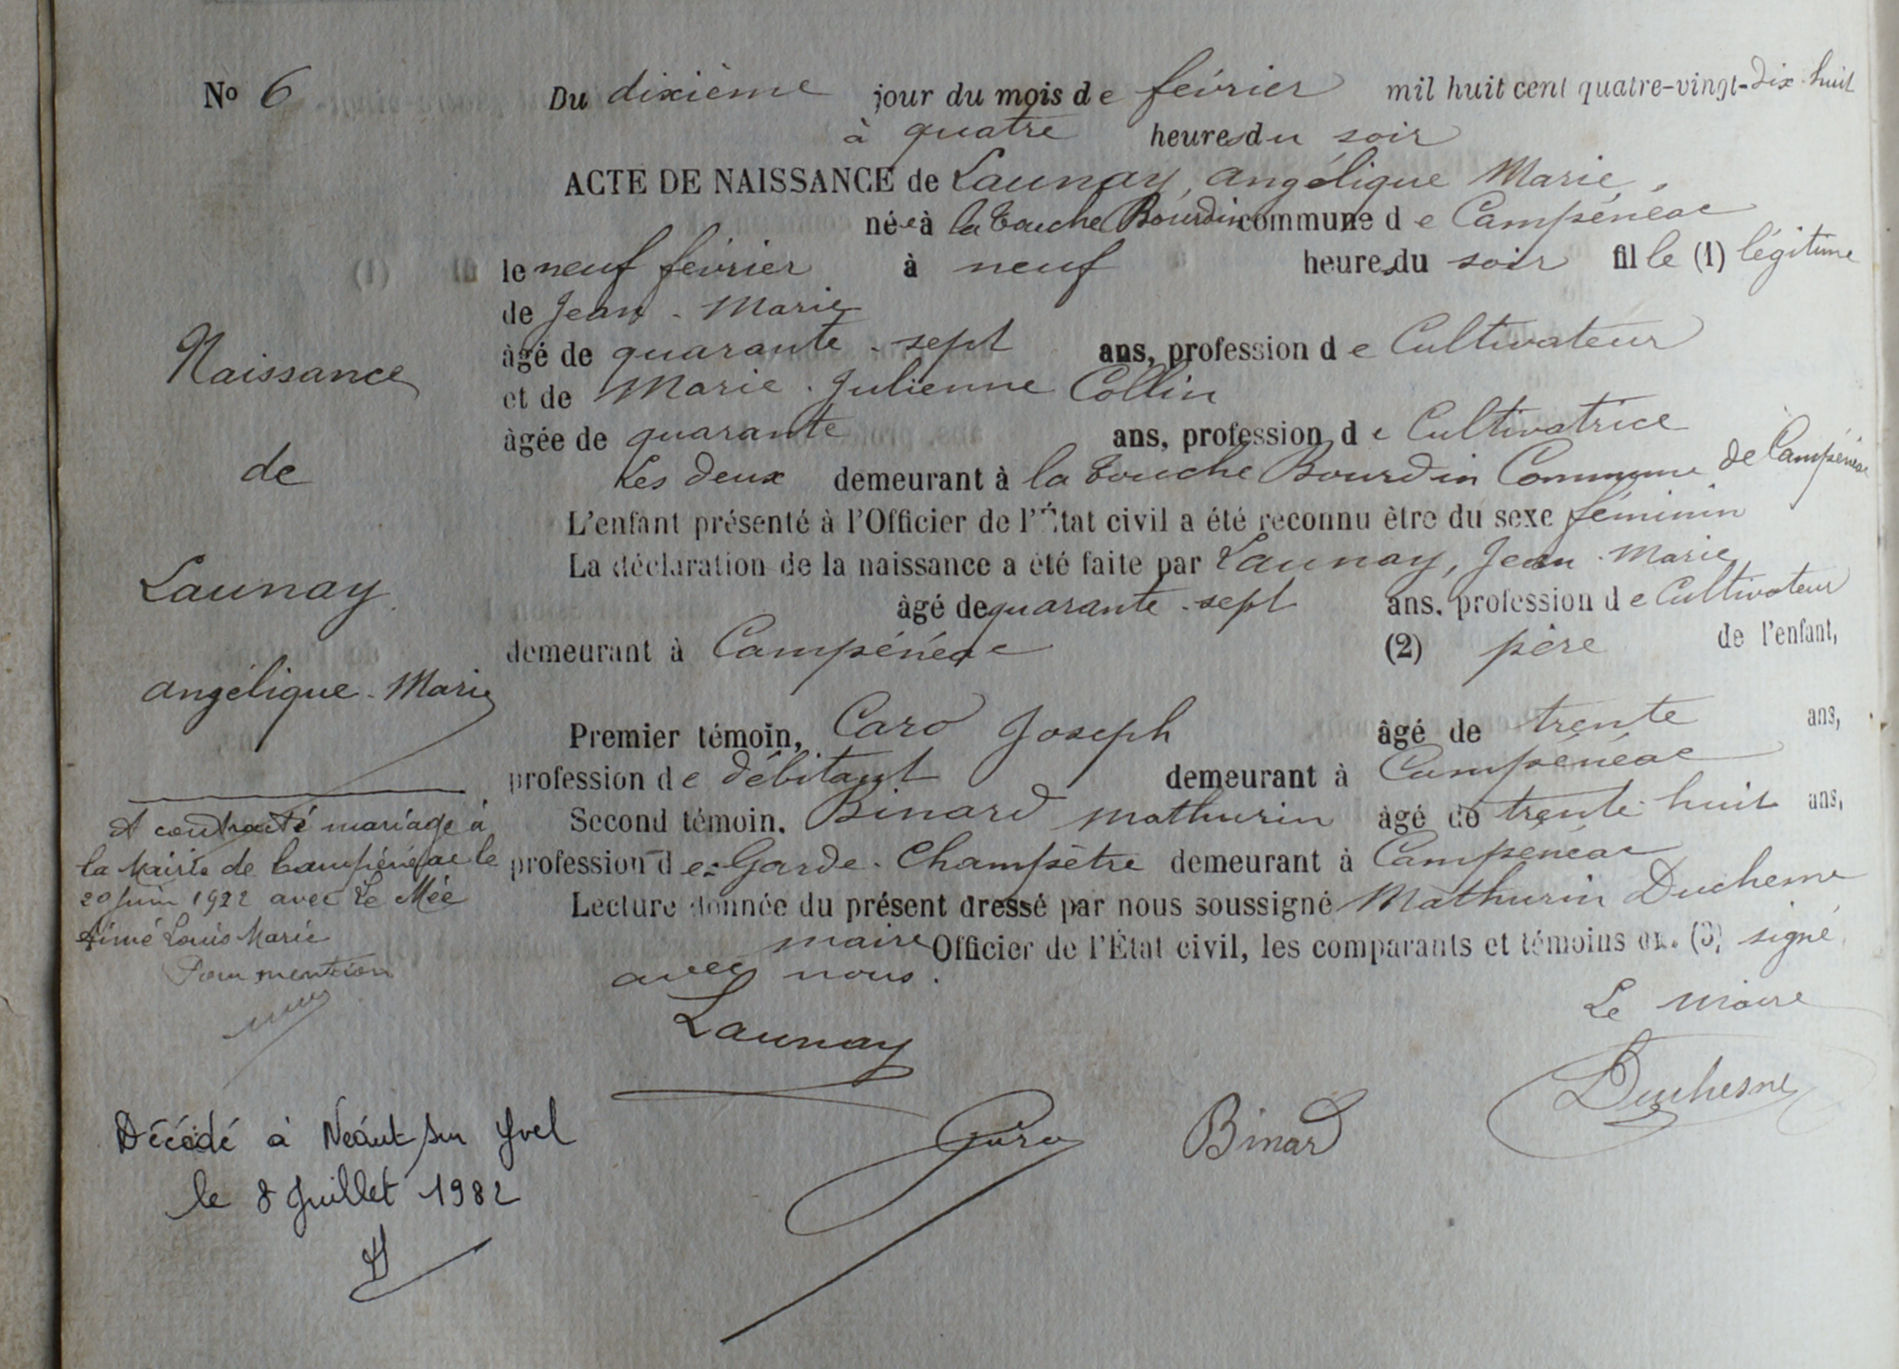 No 6
Du dixième jour du mois de février mil huit cent quatre-vingt-dix-huit
à quatre heures du soir
ACTE DE NAISSANCE de Launay, angélique Marie,
née à la touche Bourdin commune de Campénéac
le neuf février à neuf heures du soir fille (1) légitime
de Jean-Marie
âgé de quarante-sept ans, profession de Cultivateur
et de Marie-Julienne Collin
âgée de quarante ans, profession de Cultivatrice
Les deux demeurant à la touche Bourdin Commune de Campénéac
L'enfant présenté à l'Officier de l'État civil a été reconnu être du sexe féminin
La déclaration de la naissance a été faite par Launay, Jean-Marie
âgé de quarante-sept ans, profession de Cultivateur
demeurant à Campénéac (2) père de l'enfant,
Premier témoin, Caro Joseph âgé de trente ans,
profession de débitant demeurant à Campénéac
Second témoin. Binard Mathurin âgé de trente-huit ans,
profession de Garde-Champêtre demeurant à Campénéac
Lecture donnée du présent dressé par nous soussigné Mathurin Duchesne
maire Officier de l'État civil, les comparants et témoins on. (3) signé
avec nous.
Le maire
Launay
Duchesne
Caro
Binard
Naissance
de
Launay
angélique-Marie
A contracté mariage à
la Mairie de Campénéac le
20 juin 1922 avec Le Mée
Aimé Louis Marie
Pour mention
Décédé à Néant sur Yvel
le 8 Juillet 1982